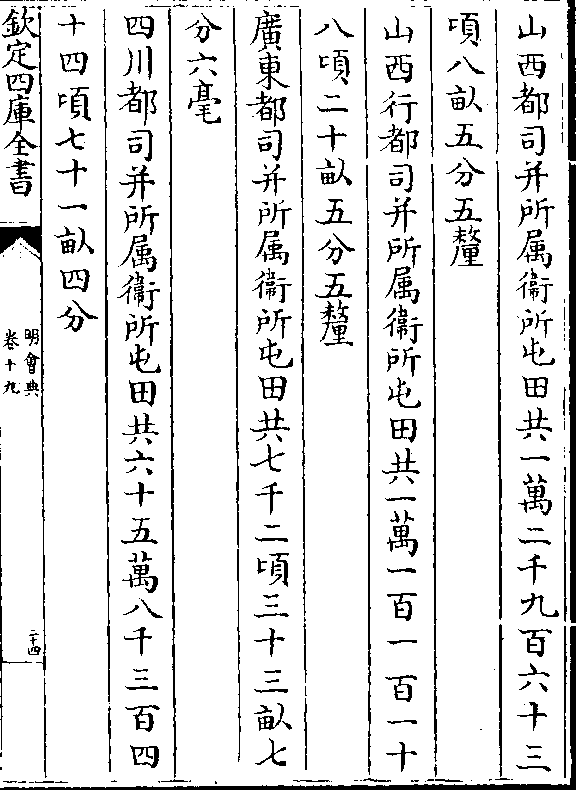 山西都司并所属衞所屯田共一萬二千九百六十三
頃八畝五分五釐
山西行都司并所属衞所屯田共一萬一百一百一十
八頃二十畝五分五釐
廣東都司并所属衞所屯田共七千二頃三十三畝七
分六毫
四川都司并所属衞所屯田共六十五萬八千三百四
十四頃七十一畝四分
欽定四庫全書
明會典
卷十九
二十四